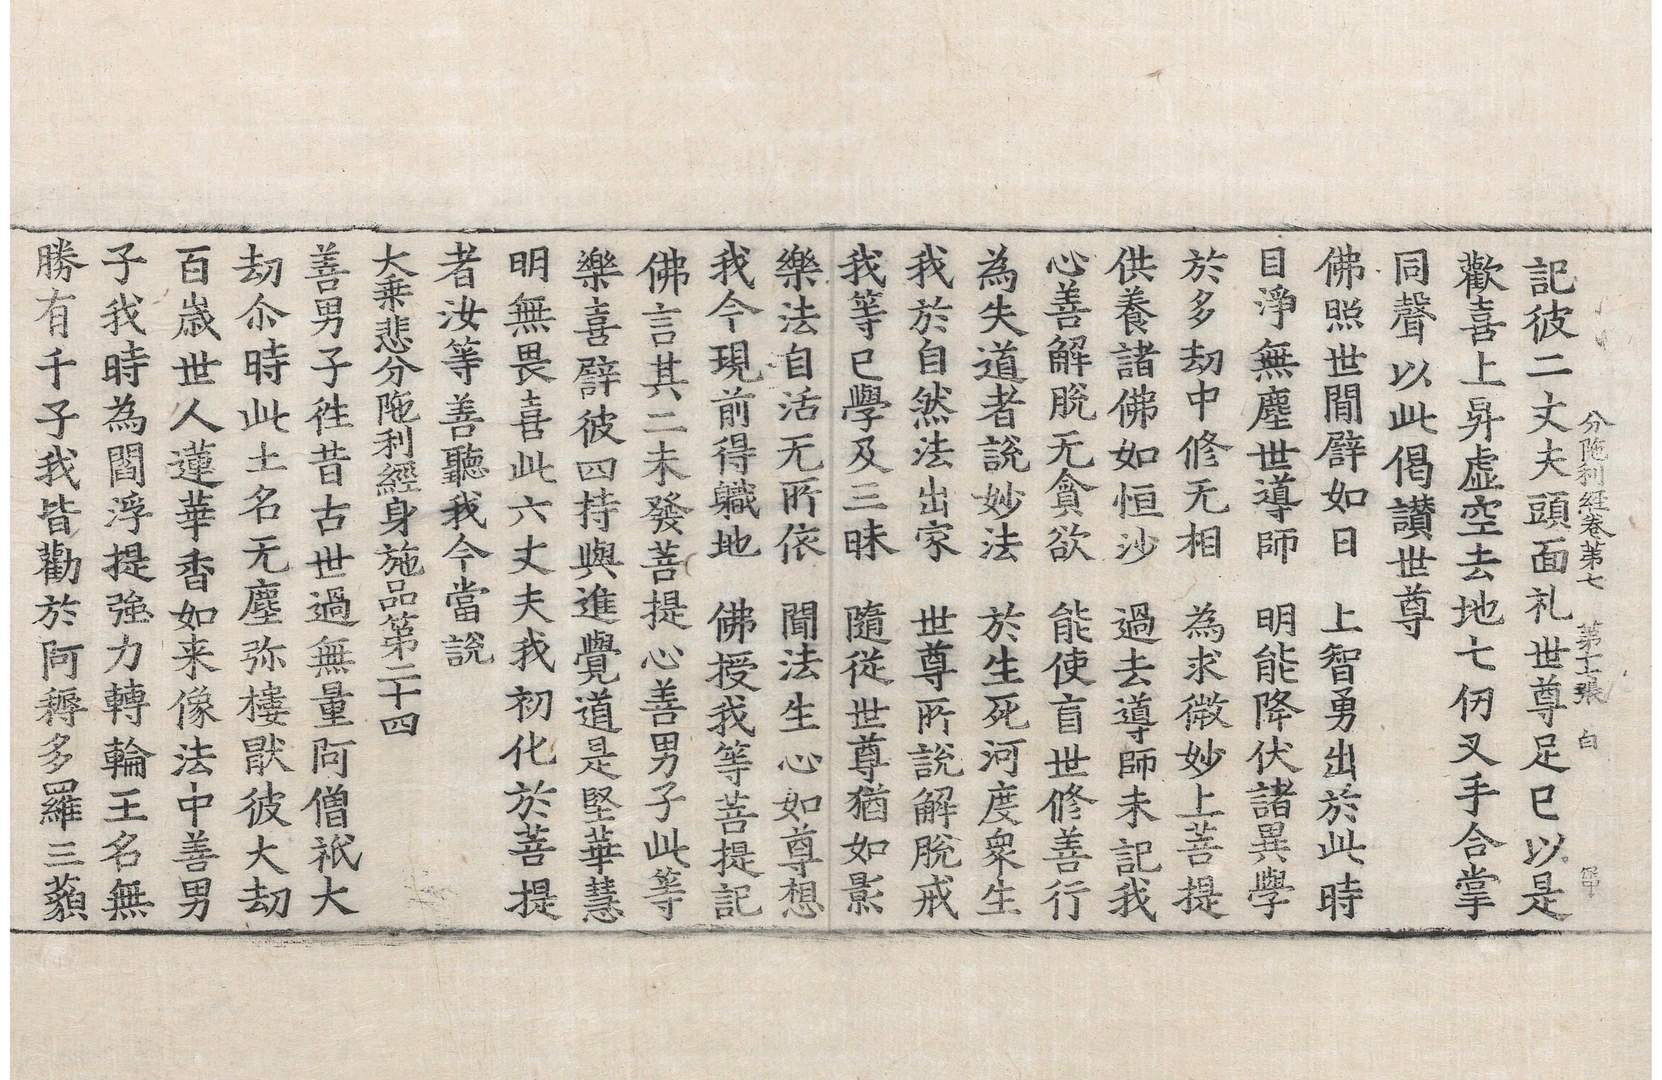 分陁利經卷第七　第十七張　白
記彼二丈夫頭面礼世尊足已以是
歡喜上昇虛空去地七仞叉手合掌
同聲以此偈讃世尊
佛照世間譬如日　上智勇出於此時
目淨無塵世導師　明能降伏諸異學
於多劫中修无相　為求微妙上菩提
供養諸佛如恒沙　過去導師未記我
心善解脫无貪欲　能使盲世修善行
為失道者說妙法　於生死河度衆生
我於自然法出家　世尊所說解脫戒
我等已學及三昧　隨從世尊猶如影
樂法自活无所依　聞法生心如尊想
我今現前得軄地　佛授我等菩提記
佛言其二未發菩提心善男子此等
樂喜譬彼四持與進覺道是堅華慧
明無畏喜此六丈夫我初化於菩提
者汝等善聽我今當說
大乗悲分陁利經身施品第二十四
善男子徃昔古世過無量阿僧祇大
劫尒時此土名无塵弥樓猒彼大劫
百歲世人蓮華香如来像法中善男
子我時為閻浮提強力轉輪王名無
勝有千子我皆勸於阿耨多羅三藐